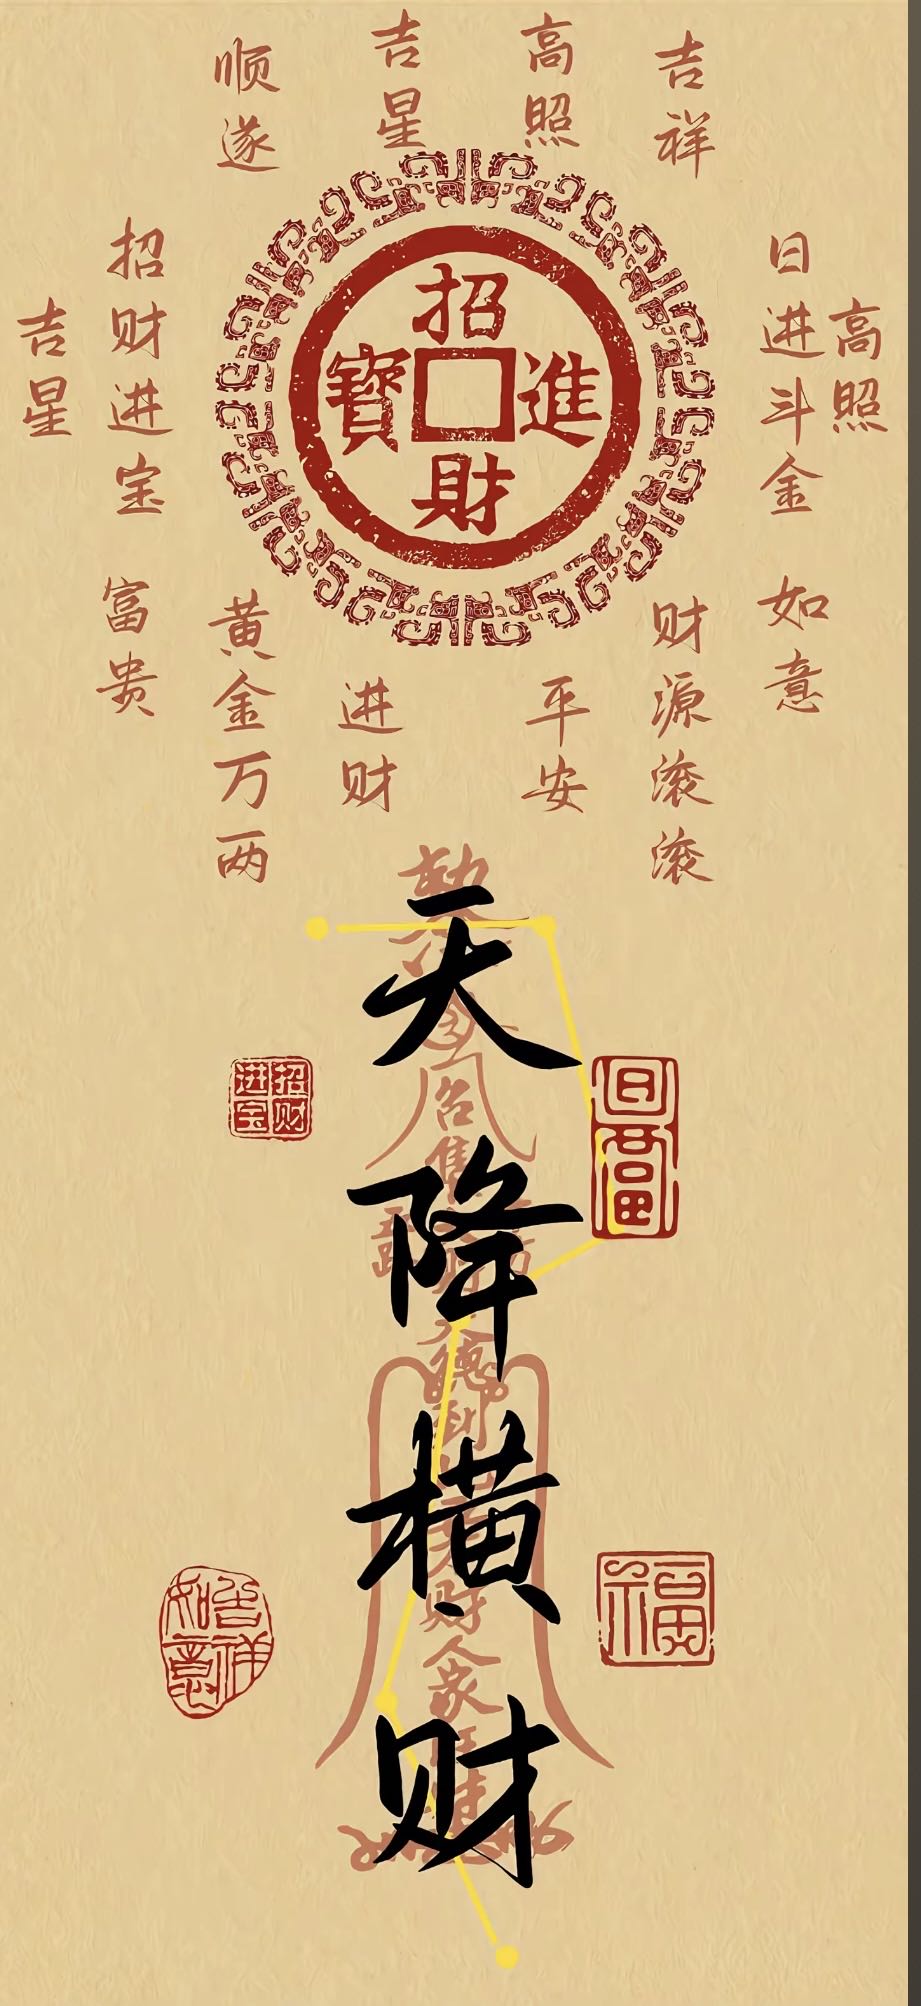 顺遂
吉星
高照
吉祥
招财进宝
吉星
日进斗金
高照
招財進寶
富贵
黄金万两
进财
平安
财源滚滚
如意
天降横财
招财进宝
吉祥如意
福